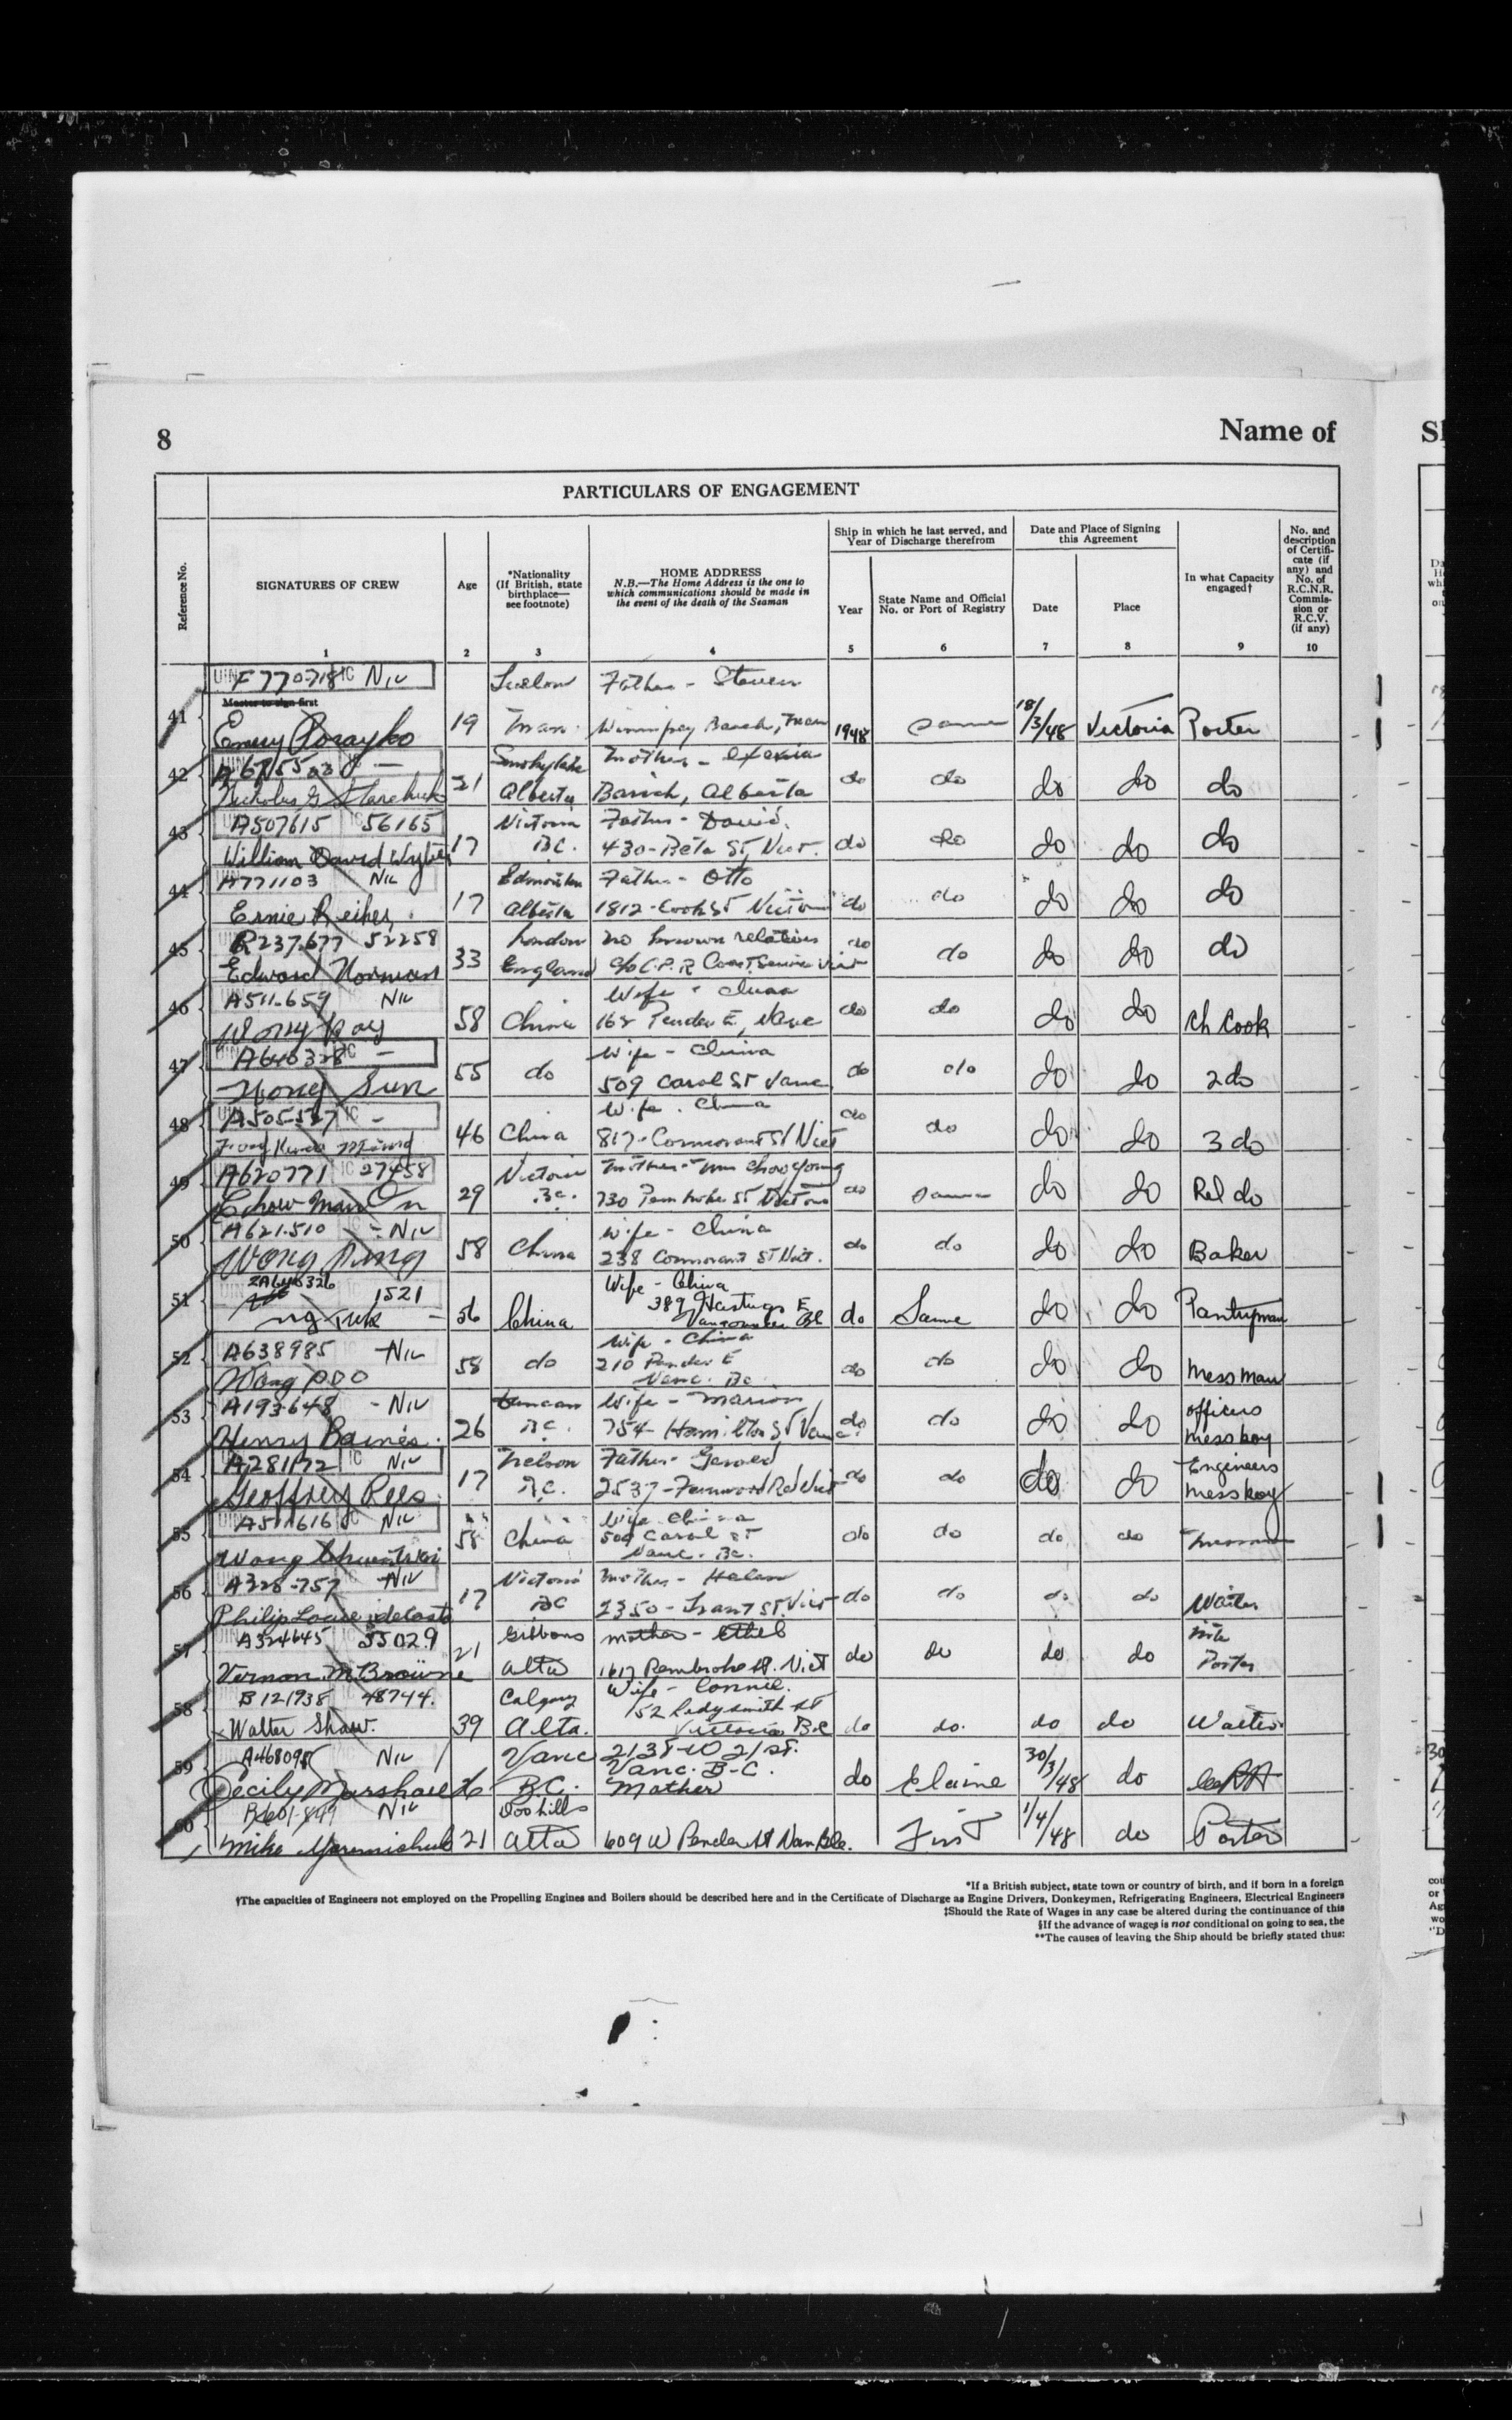 8
Name of
PARTICULARS OF ENGAGEMENT
Reference No.
SIGNATURES OF CREW
Age
*Nationality
(If British, state
birthplace—
see footnote)
HOME ADDRESS
N.B.—The Home Address is the one to
which communications should be made in
the event of the death of the Seaman
Ship in which he last served, and
Year of Discharge therefrom
Year
State Name and Official
No. or Port of Registry
Date and Place of Signing
this Agreement
Date
Place
In what Capacity
engaged†
No. and
description
of Certifi-
cate (if
any) and
No. of
R.C.N.R.
Commis-
sion or
R.C.V.
(if any)
1 2 3 4 5 6 7 8 9 10
F770718 Nil Father - Steven
Master to sign first
41 Emery 19 Man. Winnipeg Beach, Man 1948 same 18/3/48 Victoria Porter
Smokylake Mother -
42 Nicholas G 21 Alberta Alberta do do do do do
A507615 56165 Victoria Father - David
43 William David 17 B.C. 430 - Beta St, Vict. do do do do do
A771103 Nil Edmonton Father - Otto
44 Ernie Reiher 17 Alberta 1812 - Cook St Victoria do do do do do
R237677 52258 London no known relatives
45 Edward Norman 33 England c/o C.P.R Coast Service Vict do do do do do
A511-659 Nil Wife - China
46 Wong Roy 58 China 168 Pender E, Vanc do do do do Ch Cook
A640328 - Wife - China
47 Wong Sun 55 do 509 Carol St Vanc do do do do 2 do
A505527 - Wife - China
48 46 China 817 - Cormorant St Vict do do do do 3 do
A620771 27458 Victoria Mother -
49 Chow Man On 29 B.C. 730 Pembroke St Victoria do same do do Rel do
A621.510 - Nil Wife - China
50 Wong 58 China 238 Cormorant St Vict. do do do do Baker
2A640326 1521 Wife - China
389 Hastings E
51 Ng Tuk - 56 China Vancouver BC do Same do do Pantryman
A638985 Nil Wife - China
52 Wong 58 do 210 Pender E do do do do Messman
Vanc. Bc
A193648 - Nil Duncan Wife - Marion officers
53 Henry Baines 26 B.C. 754 - Hamilton St Vanc. do do do do messboy
A281172 Nil Nelson Father - Engineers
54 Geoffrey Rees 17 B.C. 2537 - Fernwood Rd Vict do do do do messboy
A511616 Nil Wife China
55 Wong 58 China 509 Carol St do do do do
Vanc. Bc.
A328-757 Nil Victoria Mother - Helen
56 Philip Louie 17 BC 2350 - St. Vict do do do do Waiter
A324645 55029 Gibbons Mother - Ethel Nite
57 Vernon M Browne 21 Alta 1617 Pembroke St. Vict do do do do Porter
B121938 48744. Calgary Wife - Connie.
152 Ladysmith St
58 Walter Shaw. 39 Alta. Victoria B.C do do. do do Waiter
A468098 Nil Vanc 2138-W 21 st.
Vanc. B.C.
59 Cecily Marshall 26 B.C. Mother do Elaine 30/3/48 do
Nil
60 Mike 21 Alta 609 W Pender St Van B.C. First 1/4/48 do Porter
*If a British subject, state town or country of birth, and if born in a foreign
†The capacities of Engineers not employed on the Propelling Engines and Boilers should be described here and in the Certificate of Discharge as Engine Drivers, Donkeymen, Refrigerating Engineers, Electrical Engineers
‡Should the Rate of Wages in any case be altered during the continuance of this
§If the advance of wages is not conditional on going to sea, the
**The causes of leaving the Ship should be briefly stated thus: